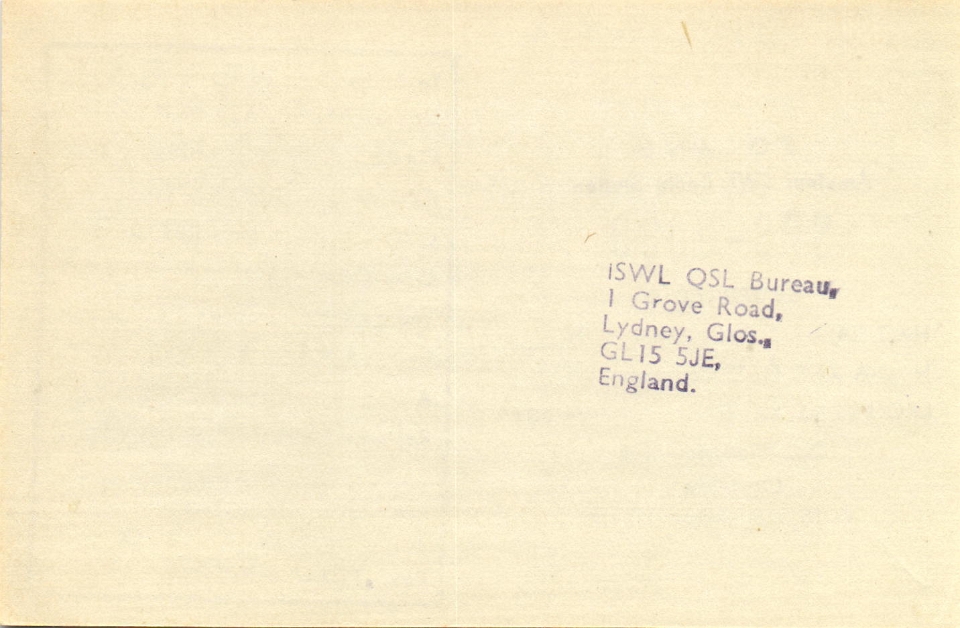 ISWL QSL Bureau,
1 Grove Road,
Lydney, Glos.,
GL15 5JE,
England.